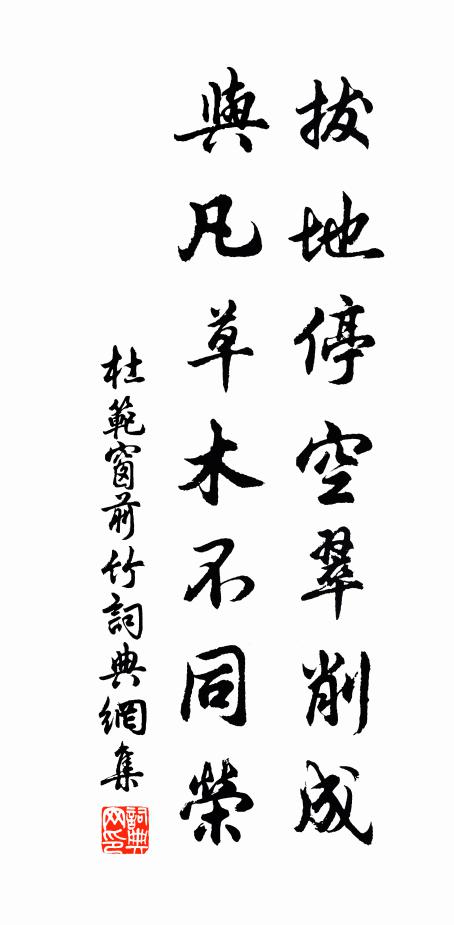 拔地停空翠削成
與凡草木不同榮
杜範窗前竹詞典網集
詞典网印